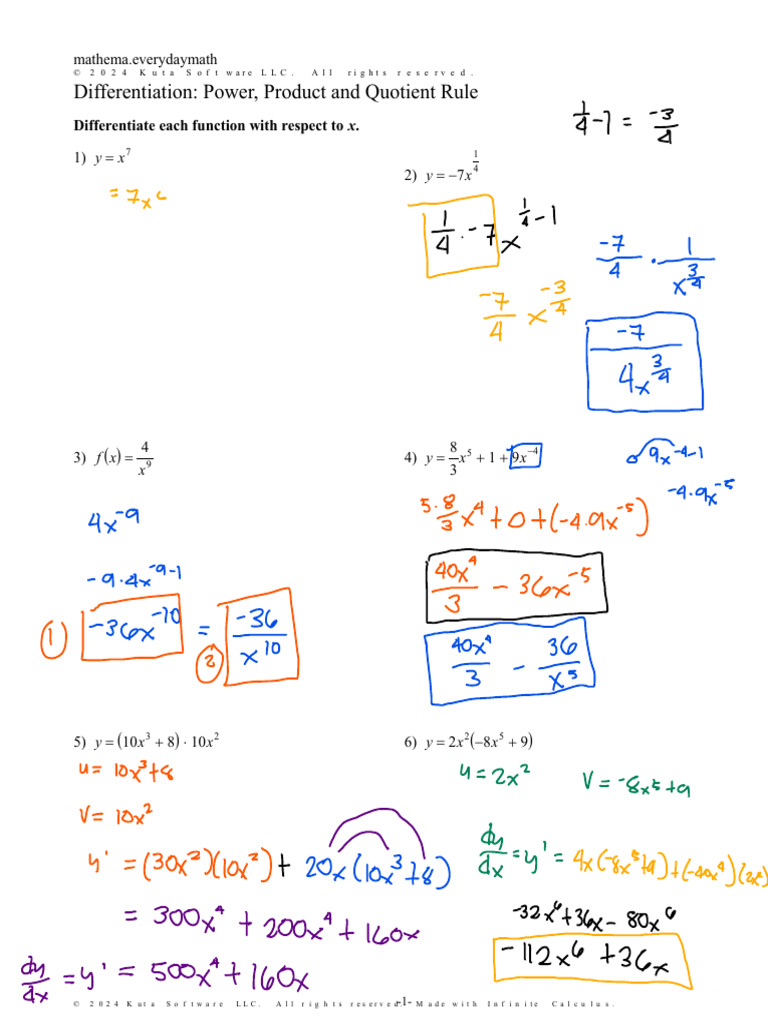 mathema.everydaymath
© 2024 Kuta Software LLC. All rights reserved.
Differentiation: Power, Product and Quotient Rule
Differentiate each function with respect to x.
1/4 - 1 = -3/4
1) y = x^7
= 7x^6
2) y = -7x^(1/4)
1/4 · -7 x^(1/4 - 1)
-7/4 x^(-3/4)
-7/4 · 1/x^(3/4)
-7/(4x^(3/4))
3) f(x) = 4/x^9
4x^-9
-9·4x^(-9-1)
① -36x^-10 = ② -36/x^10
4) y = 8/3 x^5 + 1 + 9x^-4
9x^(-4-1)
-4·9x^-5
5·8/3 x^4 + 0 + (-4·9x^-5)
40x^4/3 - 36x^-5
40x^4/3 - 36/x^5
5) y = (10x^3 + 8) · 10x^2
u = 10x^3+8
v = 10x^2
y' = (30x^2)(10x^2) + 20x(10x^3+8)
= 300x^4 + 200x^4 + 160x
dy/dx = y' = 500x^4 + 160x
6) y = 2x^2(-8x^5 + 9)
u = 2x^2
v = -8x^5+9
dy/dx = y' = 4x(-8x^5+9)+(-40x^4)(2x^2)
-32x^6+36x - 80x^6
-112x^6 + 36x
© 2024 Kuta Software LLC. All rights reserved. -1- Made with Infinite Calculus.